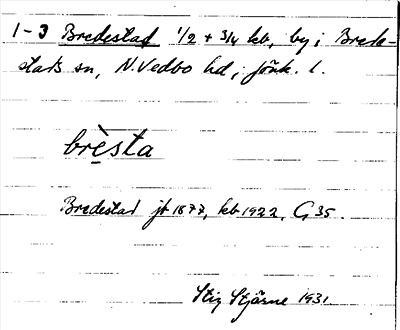 1-3 Bredestad 1/2 + 3/4 kb, by i Brede-
stads sn, N. Vedbo hd, Jönk. l.
brèsta
Bredestad jb 1877, kb 1922, G 35.
Stig Stjärne 1931